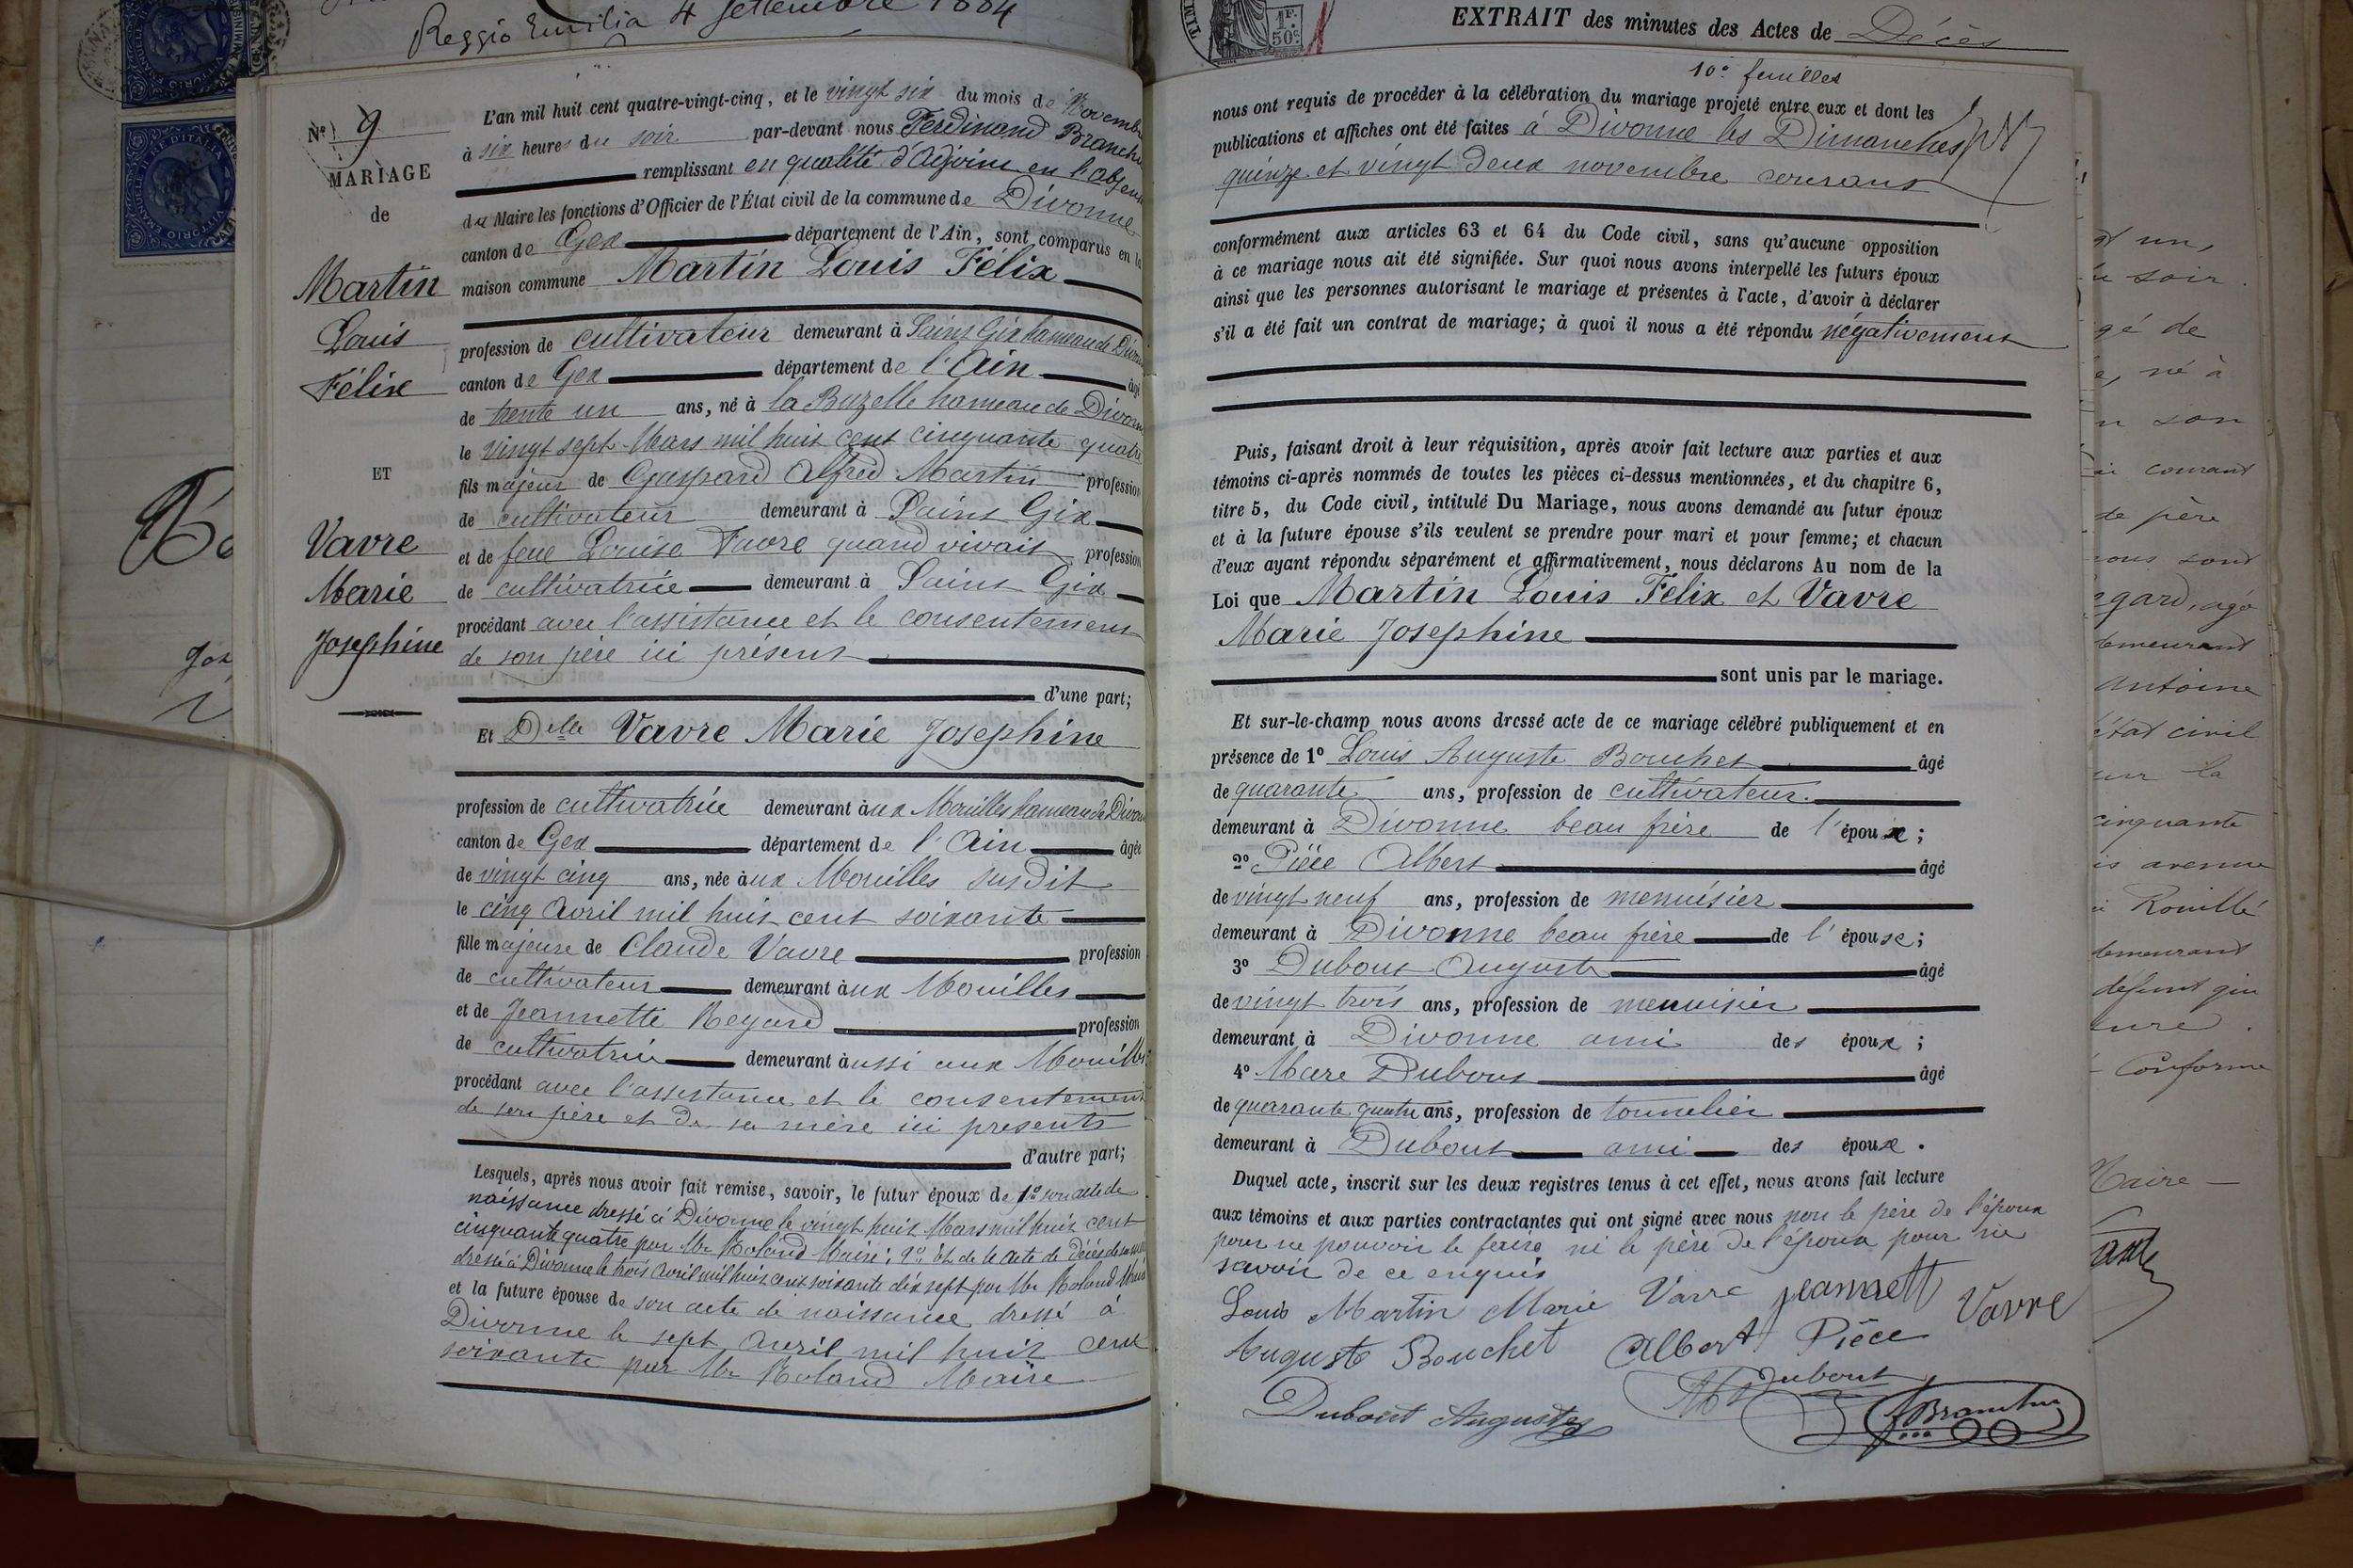 Reggio Emilia 4 settembre 1884
EXTRAIT des minutes des Actes de Décès
1F. 50c
N° 9
MARIAGE
de
Martin
Louis
Félix
ET
Vavre
Marie
Josephine
L'an mil huit cent quatre-vingt-cinq, et le vingt six du mois de Novembre
à six heures du soir par-devant nous Ferdinand Branche
remplissant en qualité d'adjoint en l'absence
du Maire les fonctions d'Officier de l'État civil de la commune de Divonne
canton de Gex département de l'Ain, sont comparus en la
maison commune Martin Louis Félix
profession de cultivateur demeurant à Saint Gix hameau de Divonne
canton de Gex département de l'Ain âgé
de trente un ans, né à la Buzelle hameau de Divonne
le vingt sept Mars mil huit cent cinquante quatre
fils majeur de Gaspard Alfred Martin profession
de cultivateur demeurant à Saint Gix
et de feue Louise Favre quand vivait profession
de cultivatrice demeurant à Saint Gix
procédant avec l'assistance et le consentement
de son père ici présent
d'une part;
Et Delle Vavre Marie Josephine
profession de cultivatrice demeurant aux Mouilles hameau de Divonne
canton de Gex département de l'Ain âgée
de vingt cinq ans, née aux Mouilles susdit
le cinq avril mil huit cent soixante
fille majeure de Claude Vavre profession
de cultivateur demeurant aux Mouilles
et de Jeannette Regard profession
de cultivatrice demeurant aussi aux Mouilles
procédant avec l'assistance et le consentement
de son père et de sa mère ici présents
d'autre part;
Lesquels, après nous avoir fait remise, savoir, le futur époux de 1° son acte de
naissance dressé à Divonne le vingt huit Mars mil huit cent
cinquante quatre par Mr Roland Maire; 2° Et de le acte de décès de sa mère
dressé à Divonne le trois avril mil huit cent soixante dix sept par Mr Roland Maire
et la future épouse de son acte de naissance dressé à
Divonne le sept avril mil huit cent
soixante par Mr Roland Maire
10e feuillet
nous ont requis de procéder à la célébration du mariage projeté entre eux et dont les
publications et affiches ont été faites à Divonne les Dimanches
quinze et vingt deux novembre courant
conformément aux articles 63 et 64 du Code civil, sans qu'aucune opposition
à ce mariage nous ait été signifiée. Sur quoi nous avons interpellé les futurs époux
ainsi que les personnes autorisant le mariage et présentes à l'acte, d'avoir à déclarer
s'il a été fait un contrat de mariage; à quoi il nous a été répondu négativement
Puis, faisant droit à leur réquisition, après avoir fait lecture aux parties et aux
témoins ci-après nommés de toutes les pièces ci-dessus mentionnées, et du chapitre 6,
titre 5, du Code civil, intitulé Du Mariage, nous avons demandé au futur époux
et à la future épouse s'ils veulent se prendre pour mari et pour femme; et chacun
d'eux ayant répondu séparément et affirmativement, nous déclarons Au nom de la
Loi que Martin Louis Félix et Vavre
Marie Josephine
sont unis par le mariage.
Et sur-le-champ nous avons dressé acte de ce mariage célébré publiquement et en
présence de 1° Louis Auguste Bouchet âgé
de quarante ans, profession de cultivateur
demeurant à Divonne beau frère de l'époux;
2° Pièce Albert âgé
de vingt neuf ans, profession de menuisier
demeurant à Divonne beau frère de l'épouse;
3° Dubout Auguste âgé
de vingt trois ans, profession de menuisier
demeurant à Divonne ami des époux;
4° Marc Dubout âgé
de quarante quatre ans, profession de tonnelier
demeurant à Dubout ami des époux.
Duquel acte, inscrit sur les deux registres tenus à cet effet, nous avons fait lecture
aux témoins et aux parties contractantes qui ont signé avec nous non le père de l'époux
pour ne pouvoir le faire ni le père de l'époux pour ne
savoir de ce enquis
Louis Martin Marie Vavre jeannett Vavre
Auguste Bouchet Albert Pièce
Dubout Auguste Md Dubout Branche
un,
soir
gé de
né à
son
courant
de père
nous sont
gard, agé
demeurant
Antoine
état civil
sur la
cinquante
avenue
Rouillé
demeurant
défunt qui
Conforme
Maire